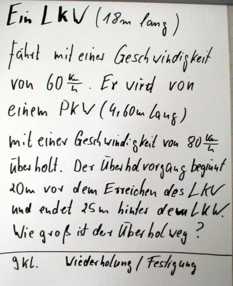 Ein LKW (18m lang)
fährt mit einer Geschwindigkeit
von 60 km/h. Er wird von
einem PKW (4,60m lang)
mit einer Geschwindigkeit von 80 km/h
überholt. Der Überholvorgang beginnt
20m vor dem Erreichen des LKW
und endet 25m hinter dem LKW.
Wie groß ist der Überholweg?
9kl. Wiederholung / Festigung